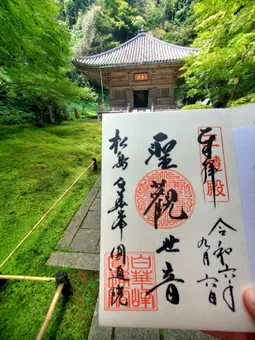 奉拝
三慧殿
令和六年
九月六日
聖観世音
松島 白華峰 圓通院
白華峰